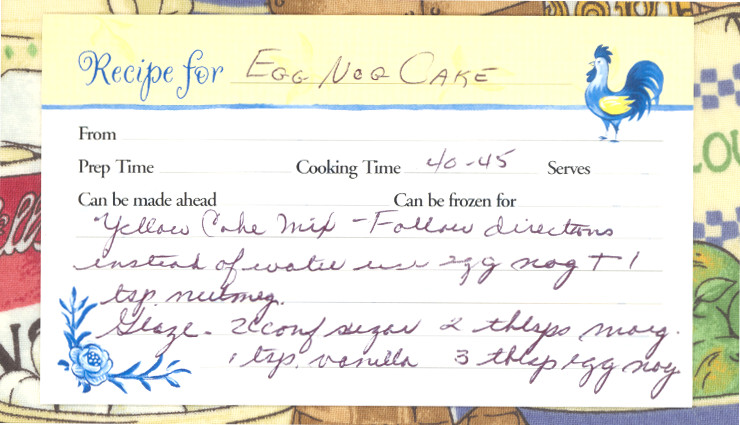 Recipe for Egg Nog Cake
From
Prep Time Cooking Time 40-45 Serves
Can be made ahead Can be frozen for
Yellow Cake Mix - Follow directions
instead of water use egg nog + 1
tsp. nutmeg.
Glaze - 2 c conf sugar 2 tblsps marg.
1 tsp. vanilla 3 tblsp egg nog